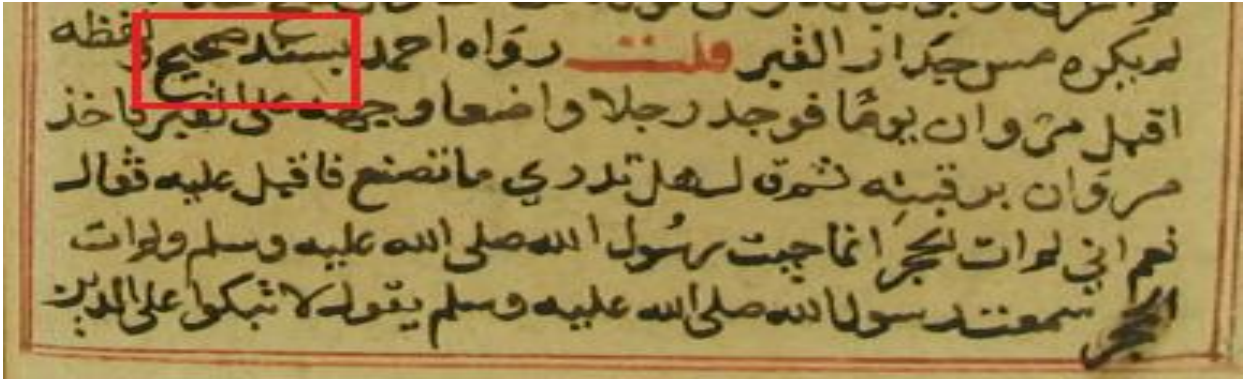 لم يكره مس جدار القبر قلت رواه احمد بسند صحيح ولفظه
اقبل مروان يوما فوجد رجلا واضعا وجهه على القبر فاخذ
مروان برقبته ثم قال هل تدري ما تصنع فاقبل عليه فقال
نعم اني لم ات الحجر انما جيت رسول الله صلى الله عليه وسلم ولم ات
الحجر سمعت رسول الله صلى الله عليه وسلم يقول لا تبكوا على الدين